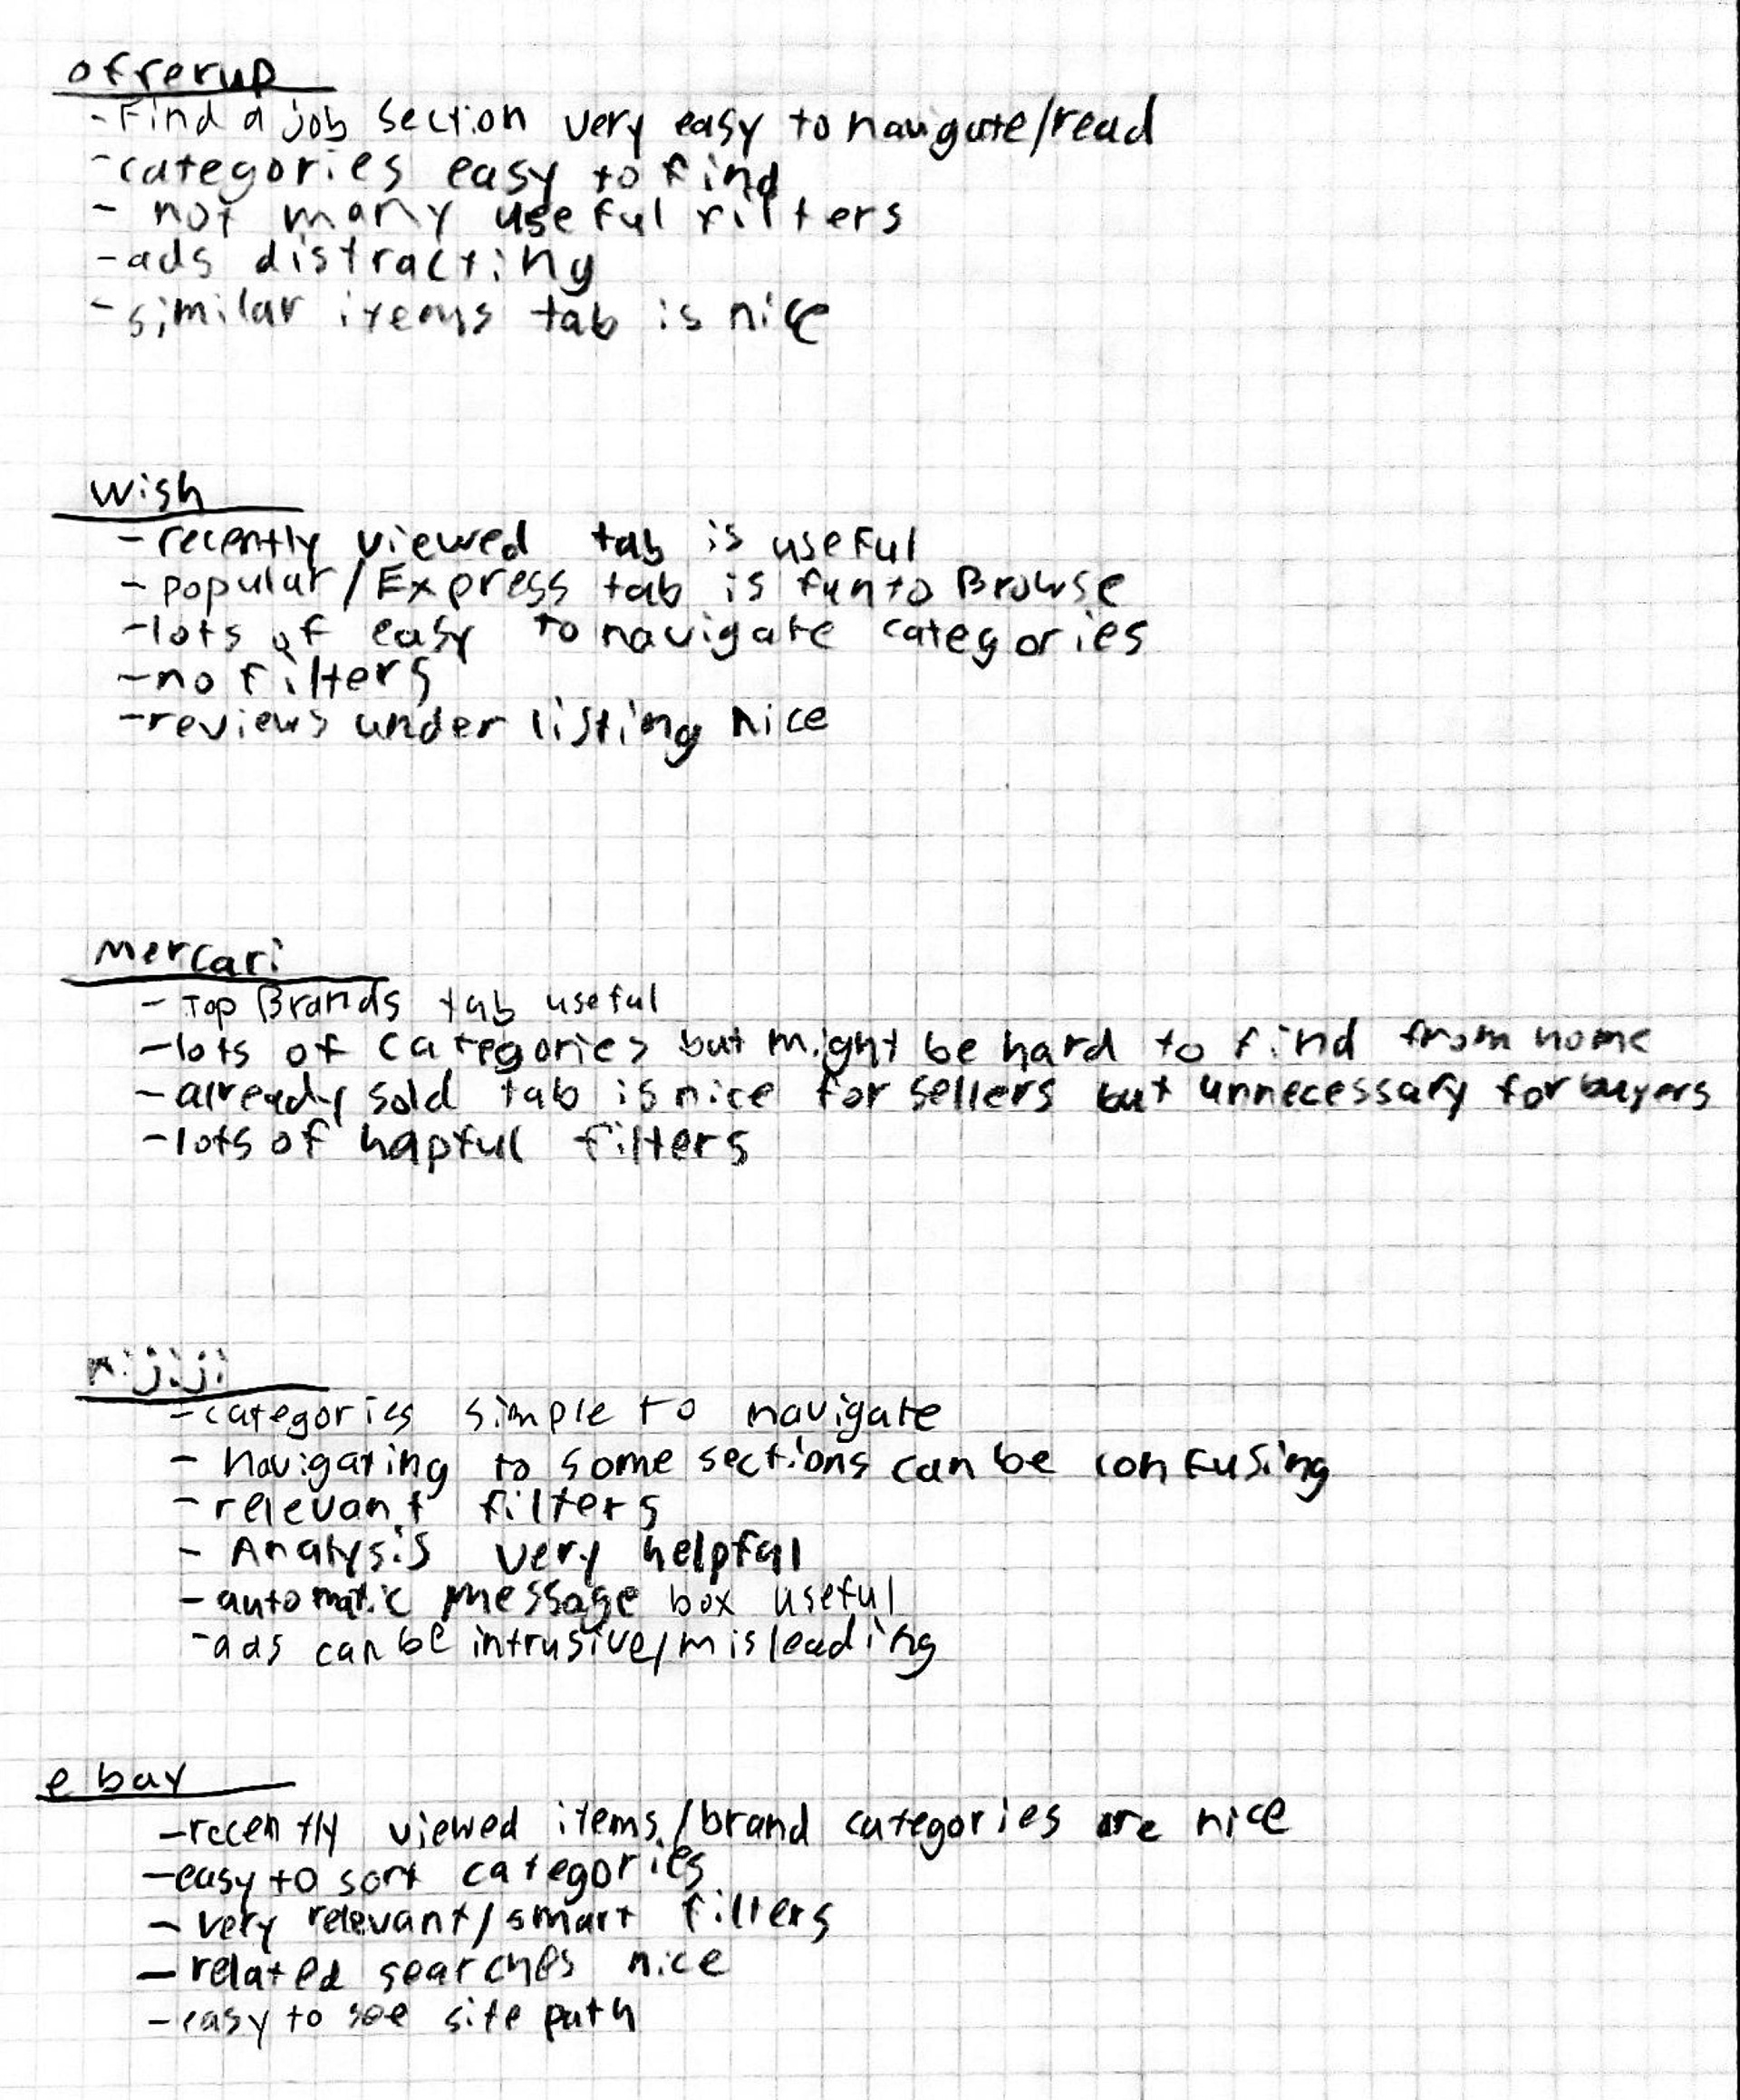 offerup
- Find a job section very easy to navigate/read
- categories easy to find
- not many useful filters
- ads distracting
- similar items tab is nice
wish
- recently viewed tab is useful
- popular/Express tab is fun to Browse
- lots of easy to navigate categories
- no filters
- reviews under listing nice
mercari
- Top Brands tab useful
- lots of categories but might be hard to find from home
- already sold tab is nice for sellers but unnecessary for buyers
- lots of hapful filters
kijiji
- categories simple to navigate
- navigating to some sections can be confusing
- relevant filters
- Analysis very helpful
- automatic message box useful
- ads can be intrusive/misleading
ebay
- recently viewed items/brand categories are nice
- easy to sort categories
- very relevant/smart filters
- related searches nice
- easy to see site path